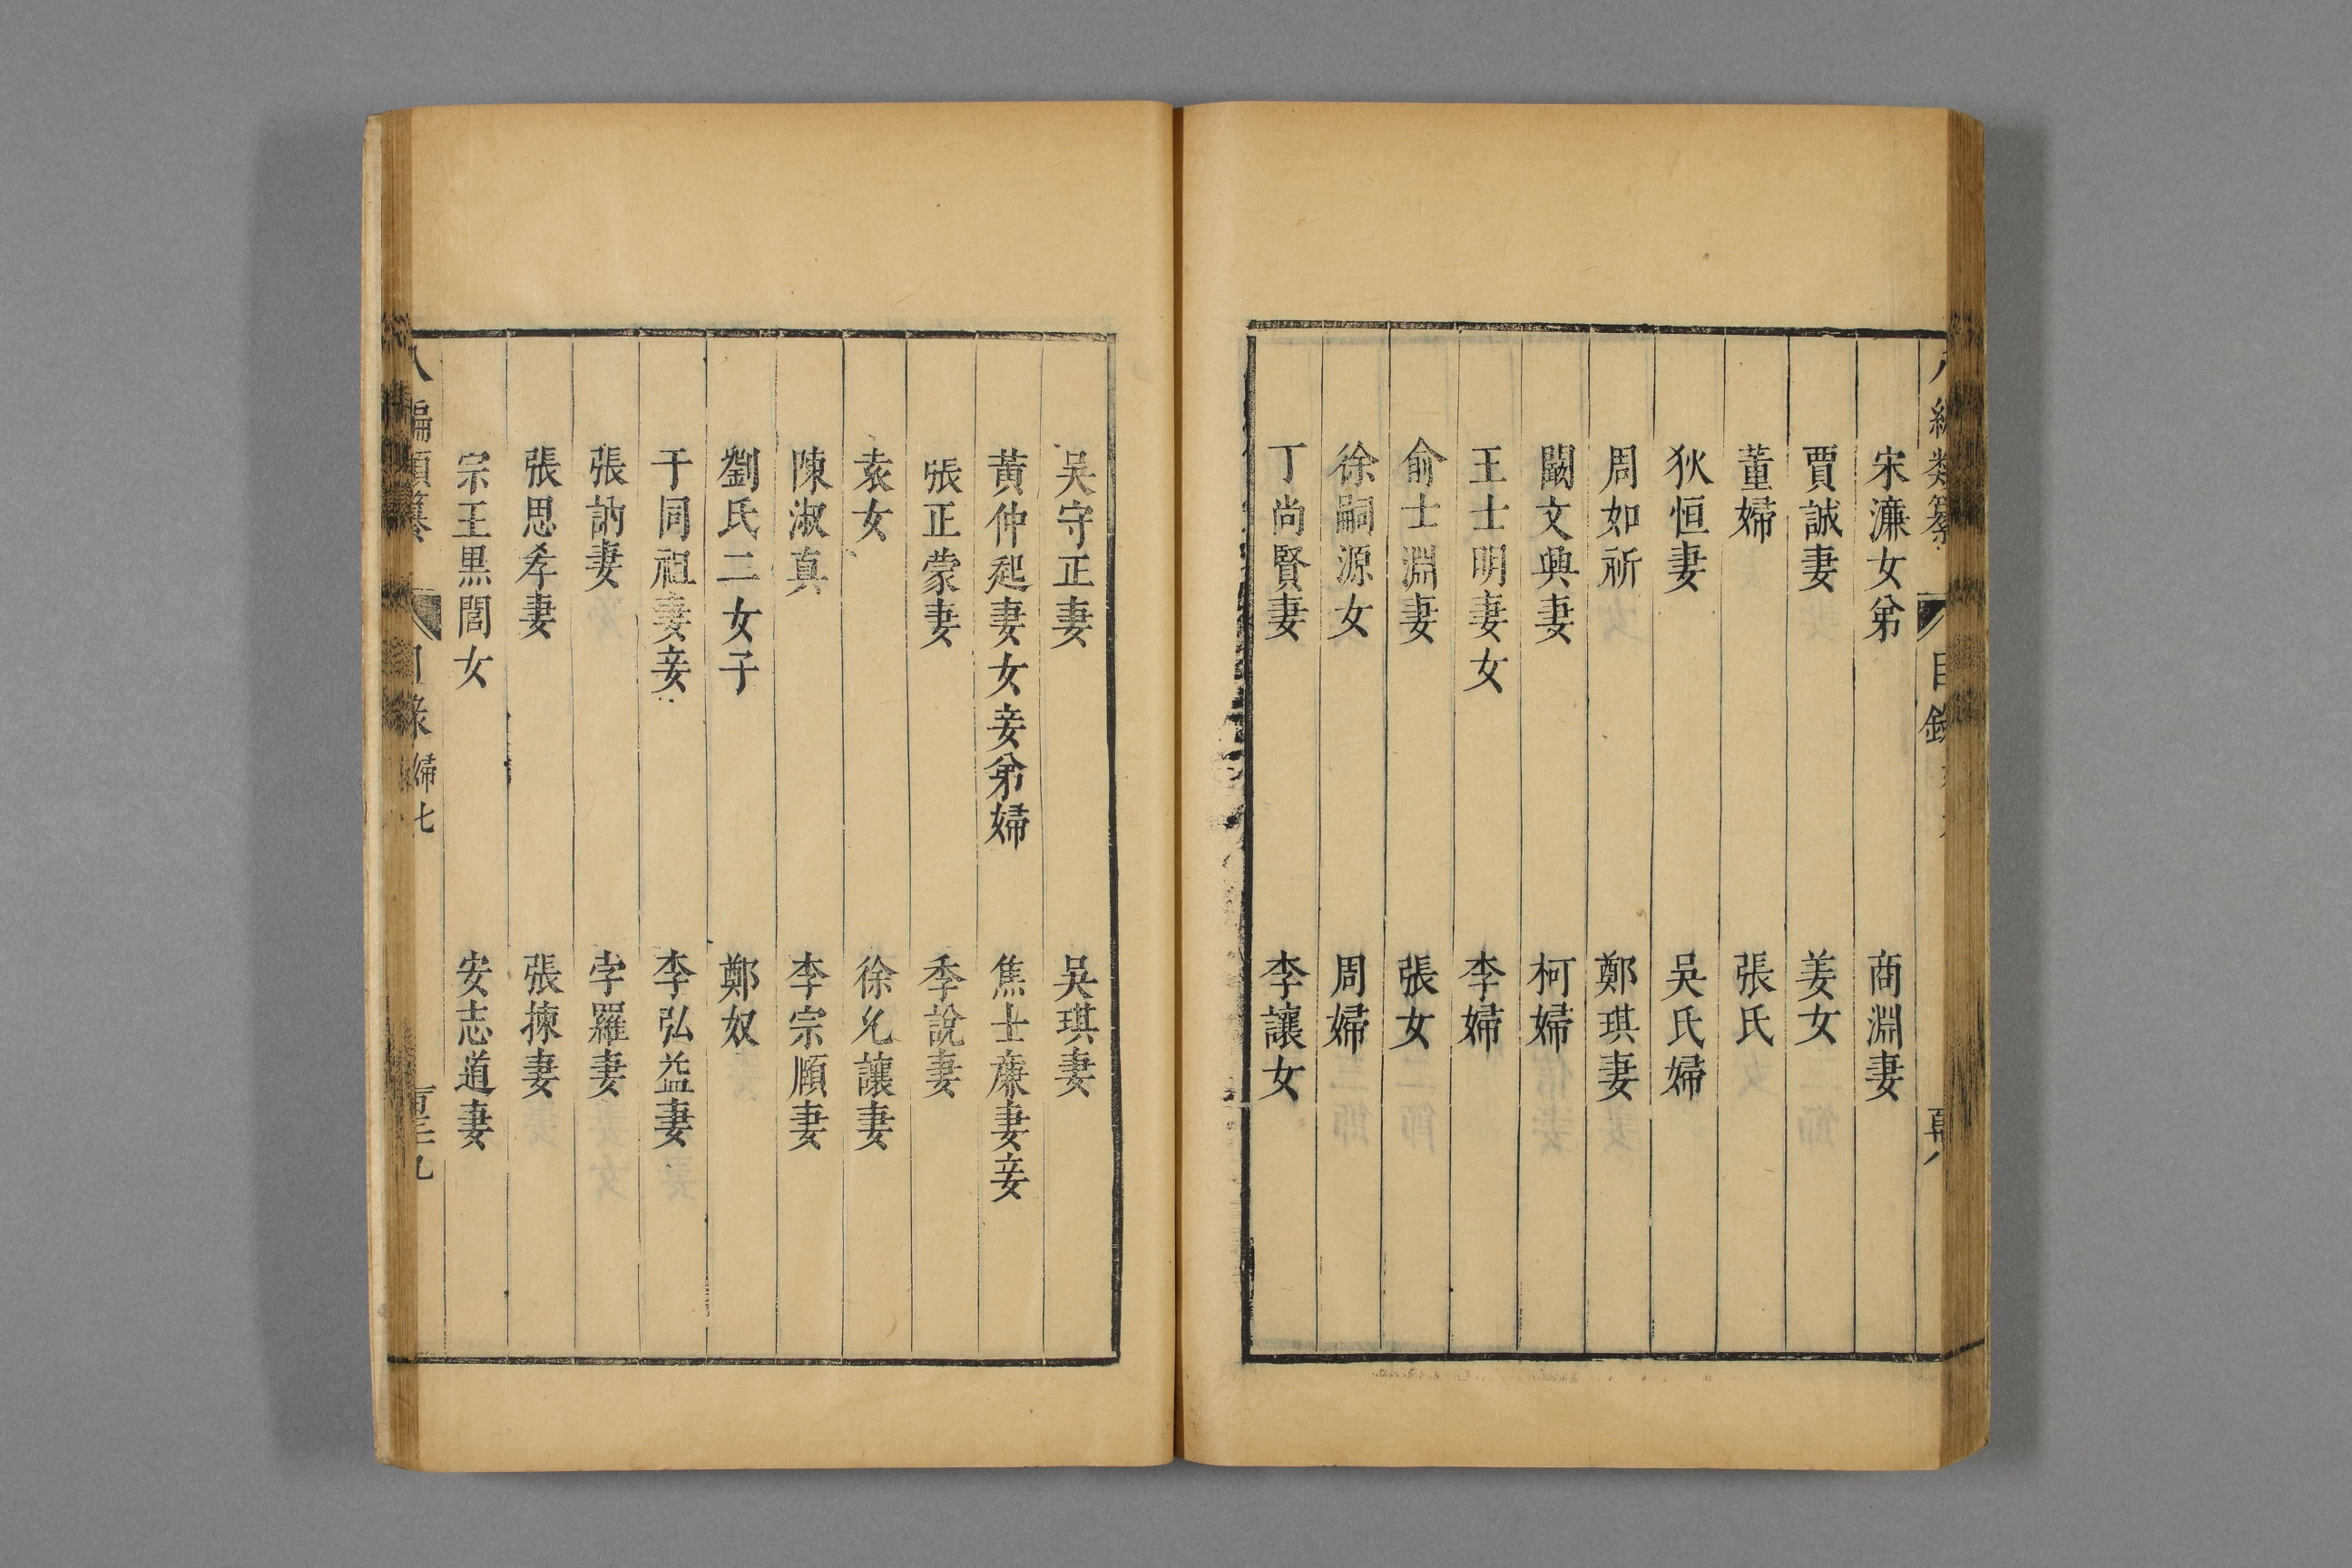 宋濂女弟　商淵妻
賈誠妻　姜女
董婦　張氏
狄恒妻　吳氏婦
周如祈　鄭琪妻
闞文興妻　柯婦
王士明妻女　李婦
俞士淵妻　張女
徐嗣源女　周婦
丁尚賢妻　李讓女
吳守正妻　吳琪妻
黃仲起妻女妾弟婦　焦士廉妻妾
張正蒙妻　季說妻
袁女　徐允讓妻
陳淑真　李宗頤妻
劉氏二女子　鄭奴
于同祖妻妾　李弘益妻
張訥妻　孛羅妻
張思孝妻　張揀妻
宗王黑閭女　安志道妻